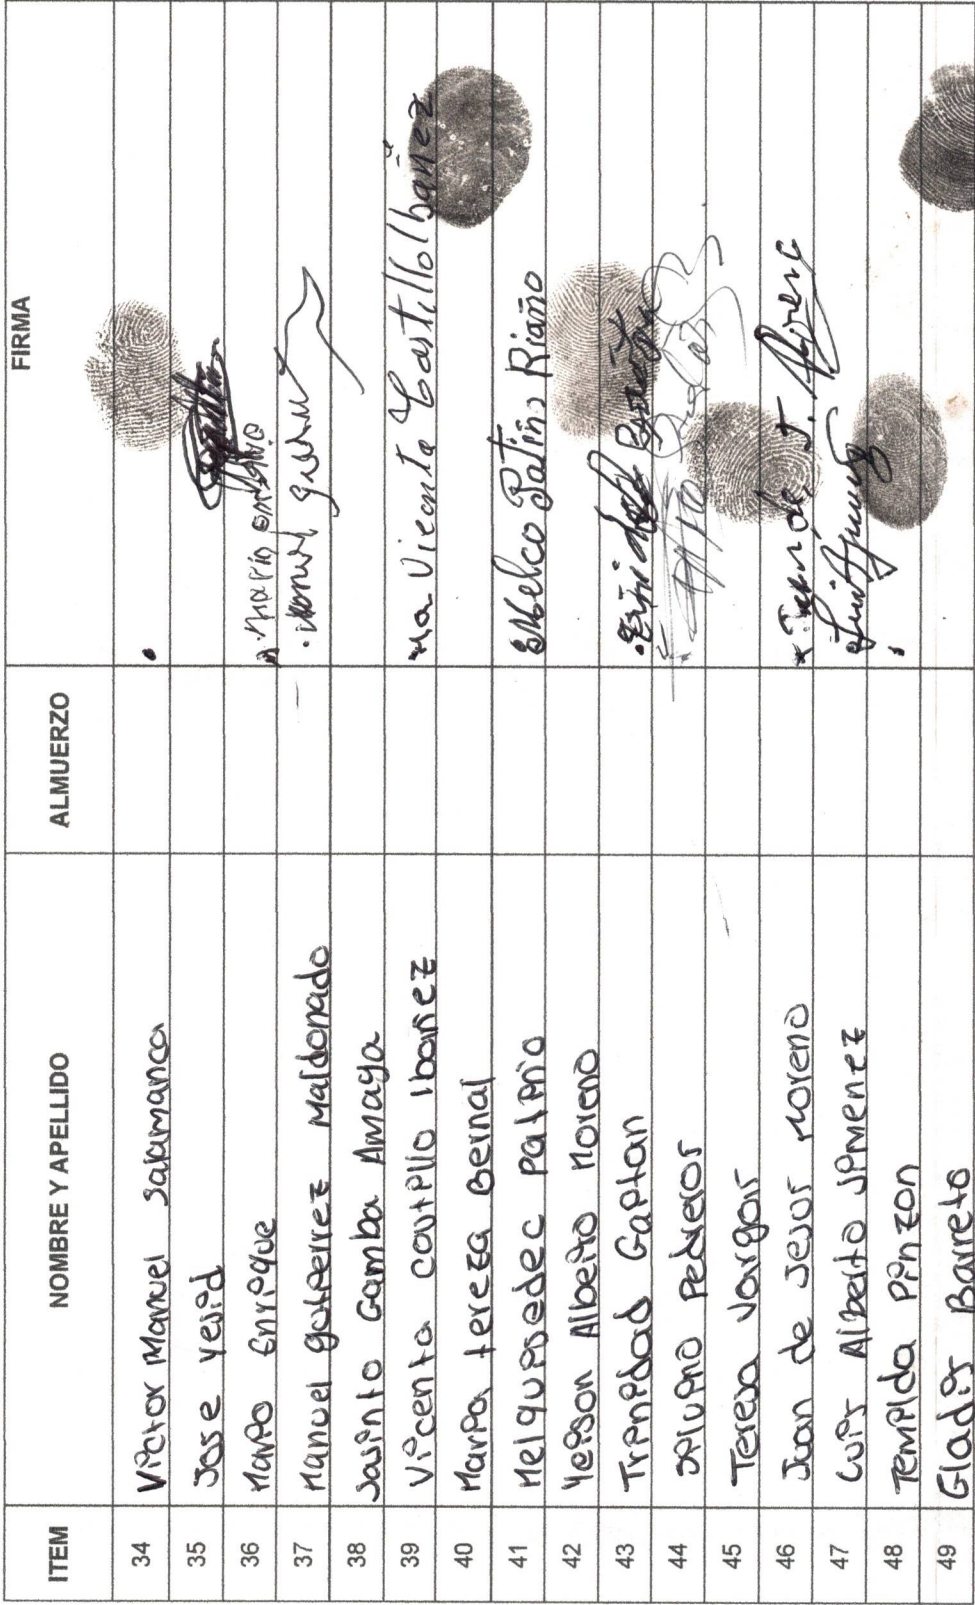 ITEM NOMBRE Y APELLIDO ALMUERZO FIRMA
34 Victor Manuel Salamanca
35 Jose Yesid
36 Mario Enrique
37 Manuel gutierrez Maldonado . Manuel
38 Jasinto Gamba Amaya
39 Vicenta castillo Ibañez Ma Vicenta Castillo Ibañez
40 Maria tereza Bernal
41 Melquisedec Patiñio Melco Patiño Riaño
42 Yeison Albeiro Moreno
43 Trinidad Gaitan
44 Silvino Pedreros
45 Teresa Vargas
46 Juan de Jesus Moreno
47 Luis Alberto Jimenez
48 Temilda Pinzon
49 Gladis Barreto